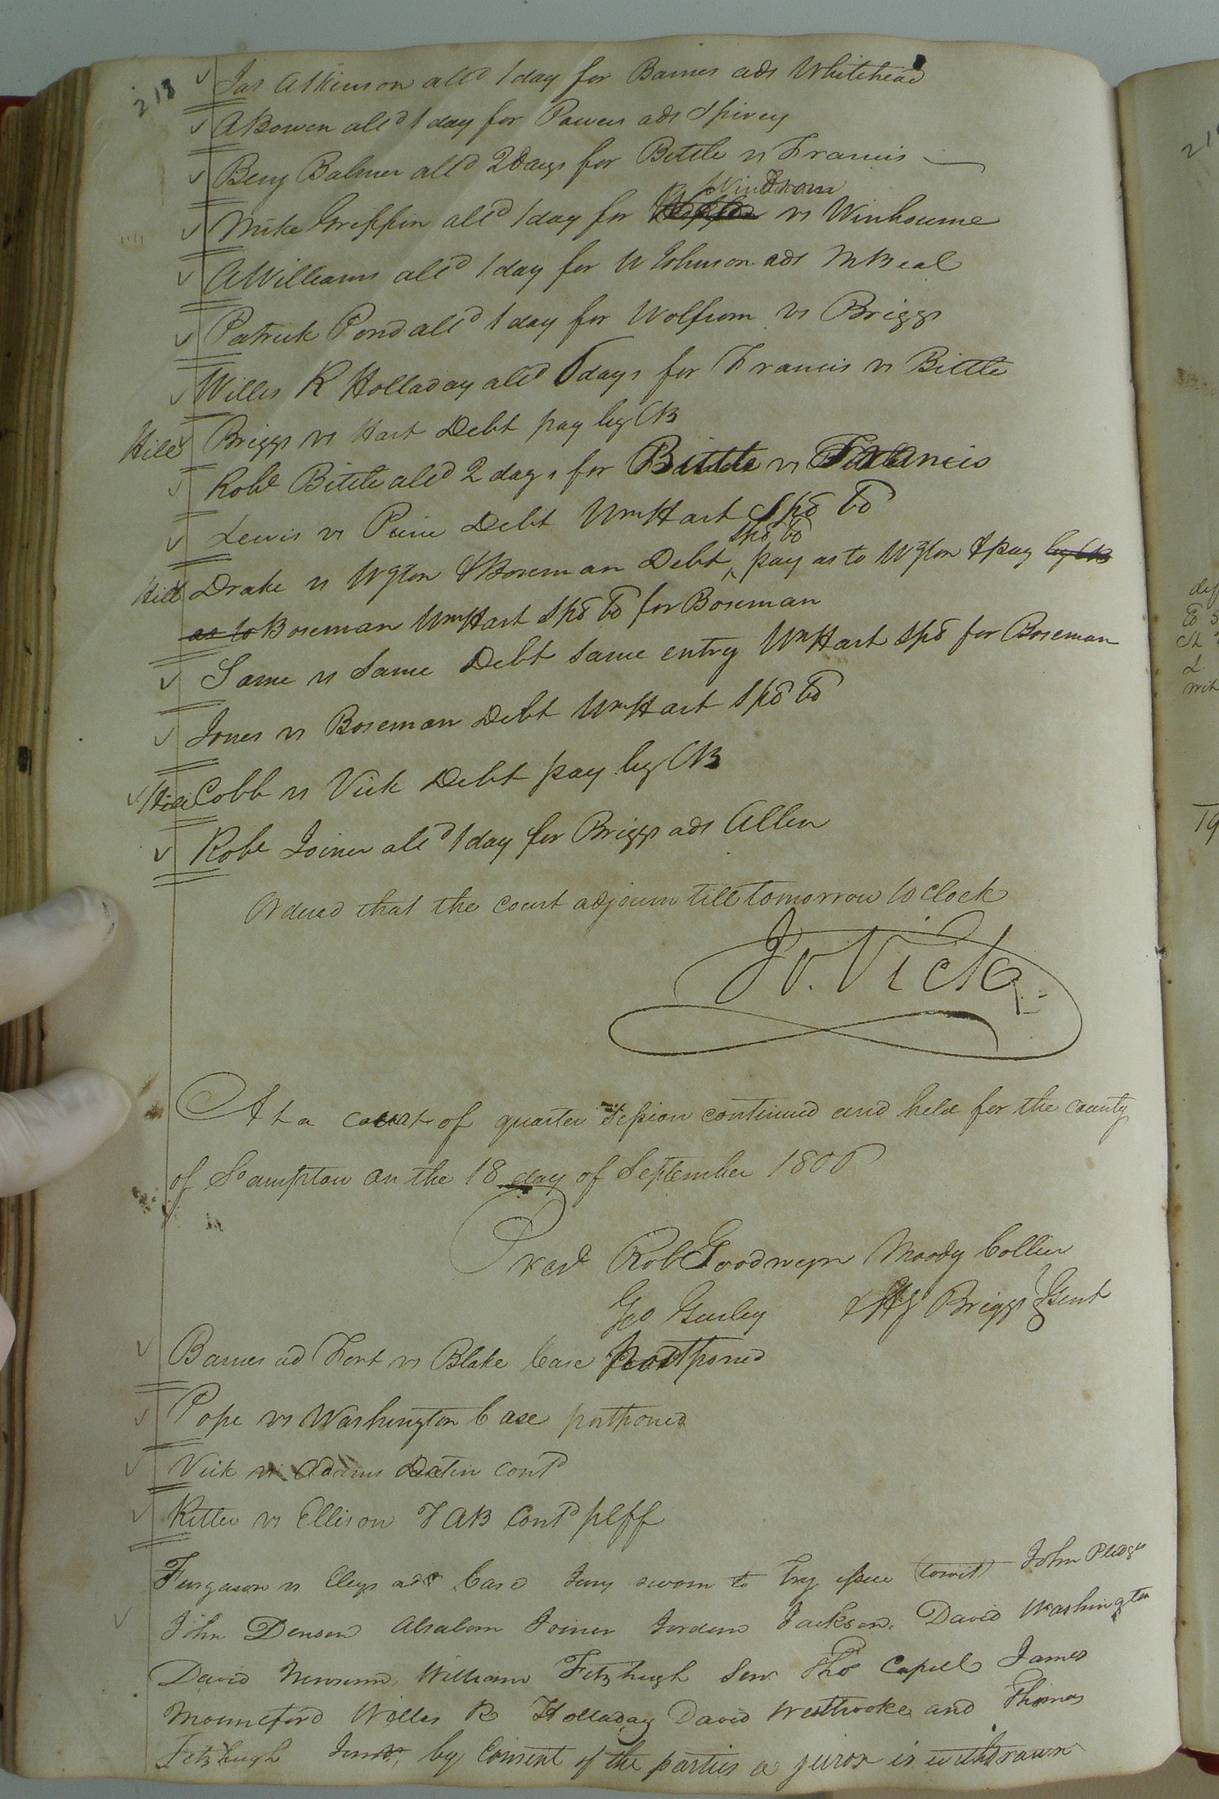 213
Jas Atkinson alld 1 day for Barnes ads Whitehead
ABowen alld 1 day for Powers ads Spivey
Benj Balmer alld 2 Days for Bittle vs Francis
Windrom
Mike Griffin alld 1 day for vs Winbourne
AWilliams alld 1 day for W Johnson ads McBeal
Patrick Pond alld 1 day for Wolfrom vs Briggs
Willis R Holladay alld 6 days for Francis vs Bittle
Hill Briggs vs Hart Debt pay by CB
Robt Bittle alld 2 days for Bittle vs Francis
Lewis vs Prine Debt Wm Hart Spd Bd
Spd Bd
Hill Drake vs Wgton & Boseman Debt ^ pay as to Wgton & pay by CB
as to Boseman Wm Hart Spd Bd for Boseman
Same vs Same Debt same entry Wm Hart Spd for Boseman
Jones vs Boseman Debt Wm Hart Spd Bd
Hill Cobb vs Vick Debt pay by CB
Robt Joiner alld 1 day for Briggs ads Allen
Ordered that the court adjourn till tomorrow 10 oClock
Jo. Vick
At a court of quarter Session continued and held for the county
of Soampton on the 18 day of September 1806
Prest Rob Goodwyn Moody Collier
Geo Gurley & Hy Briggs Gent
Barnes ad Fort vs Blake Case Postponed
Pope vs Washington Case postponed
Vick vs Adams Detin contd
Ritter vs Ellison TAB Contd plff
Furgason vs Eleys adr Case Jury sworn to try issue (towit) John Pledge
John Denson Absalom Joiner Jordan Jackson. David Washington
David Newsum, William Fitzhugh Senr Thos Capell James
Mounceford Willis R Holladay David Westbrooke and Thomas
Fitzhugh Junr, by Consent of the parties a juror is withdrawn